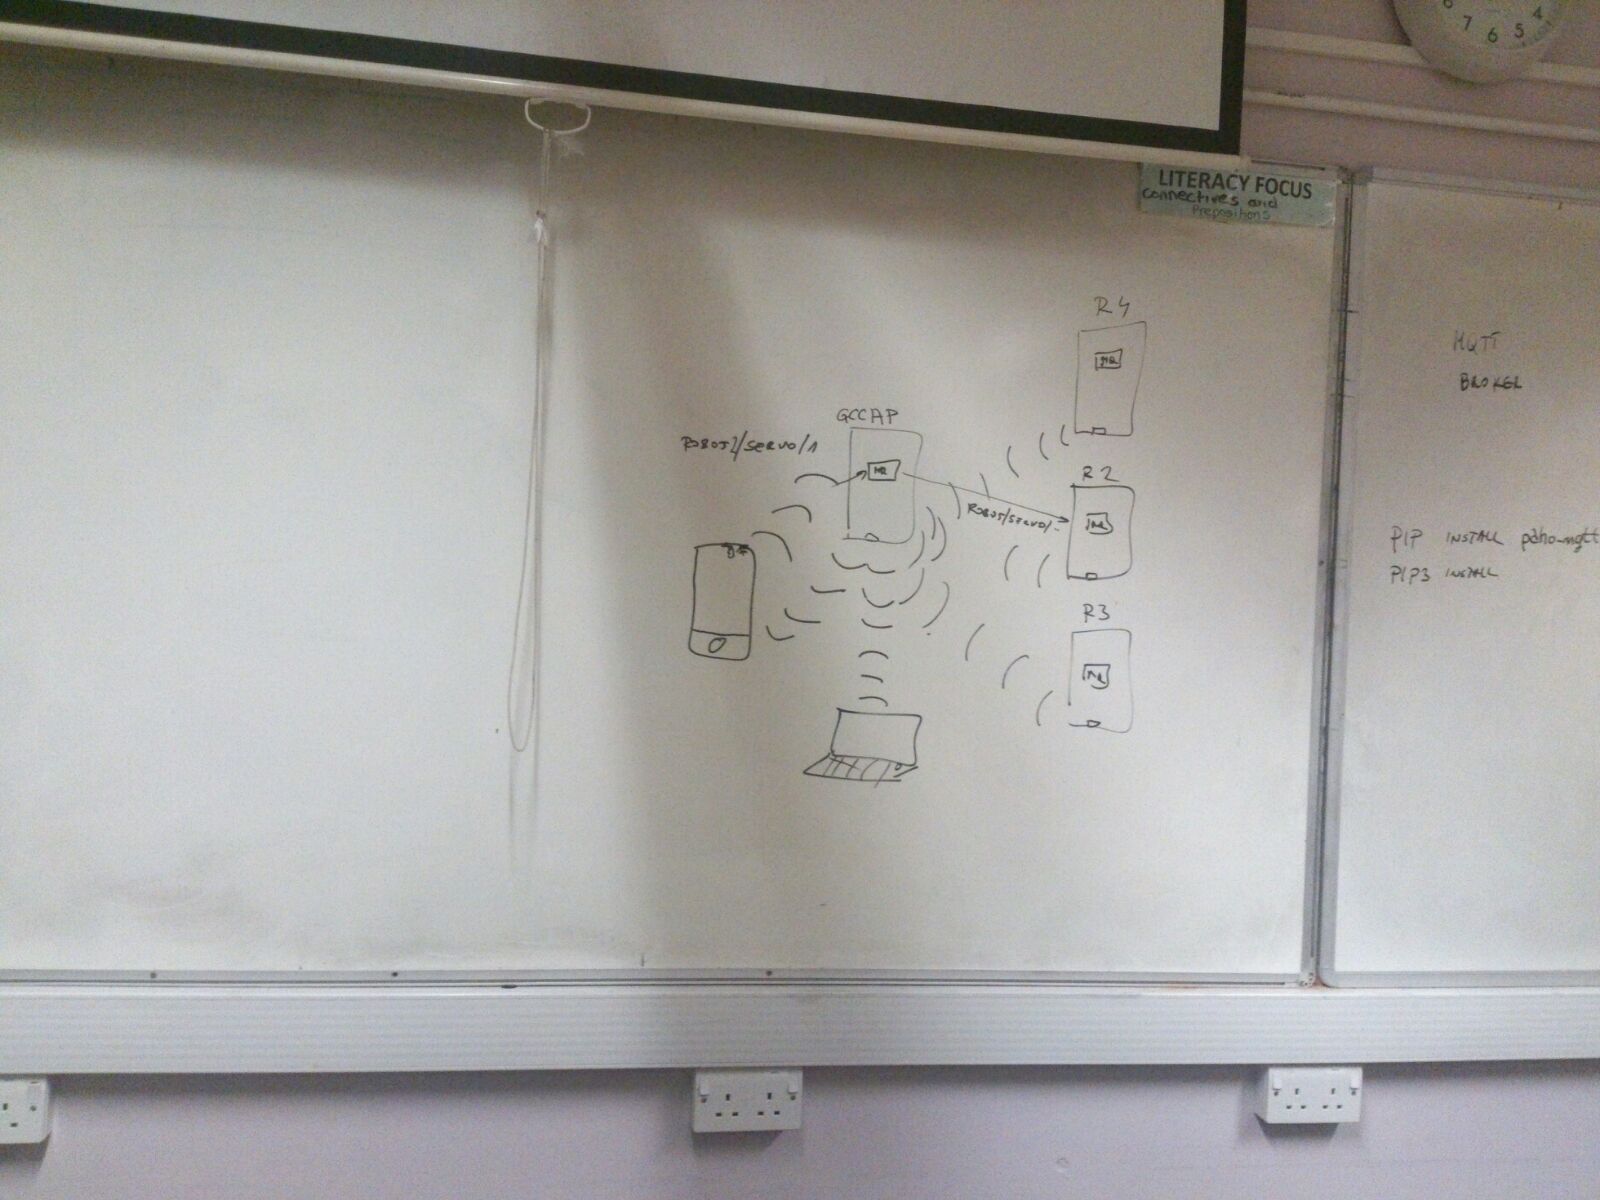 7 6 5 4
LITERACY FOCUS
Connectives and
Prepositions
R4
MQ
GCCAP
MQ
ROBOT2/SERVO/1
R2
MQ
ROBOT/SERVO/-
R3
MQ
MQTT
BROKER
PIP INSTALL paho-mqtt
PIP3 INSTALL